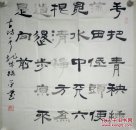 手把青秧插
滿田低頭便
見水中天六
根清淨方為
道退步原來
是向前